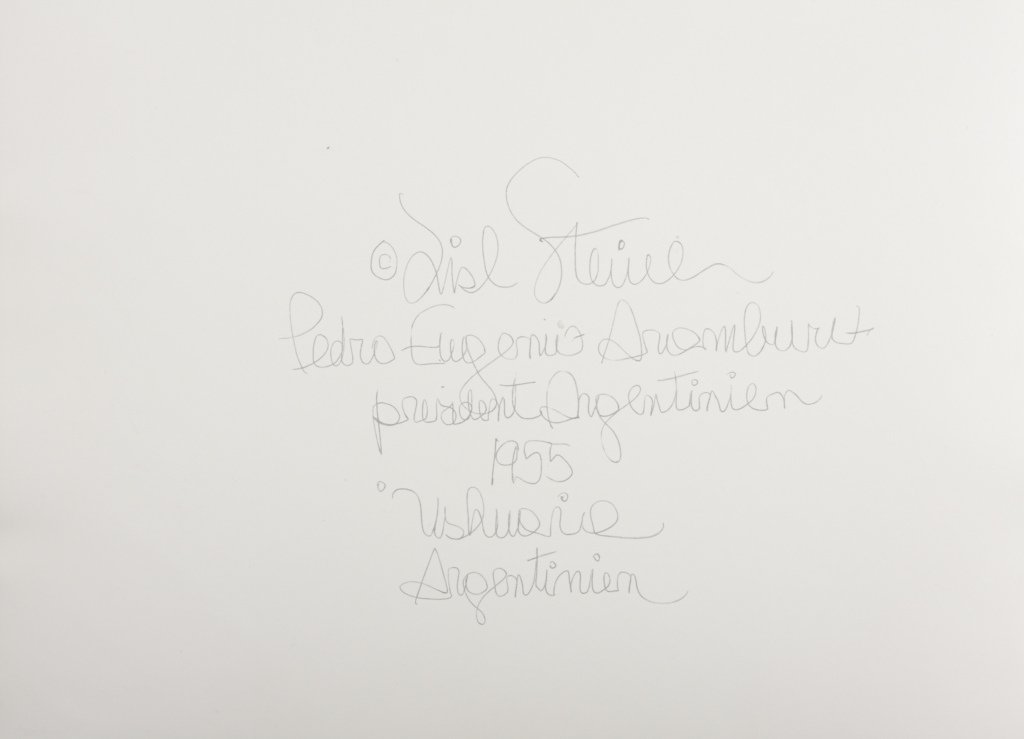 © Lisl Steiner
Pedro Eugenio Aramburu
president Argentinien
1955
Ushuaia
Argentinien